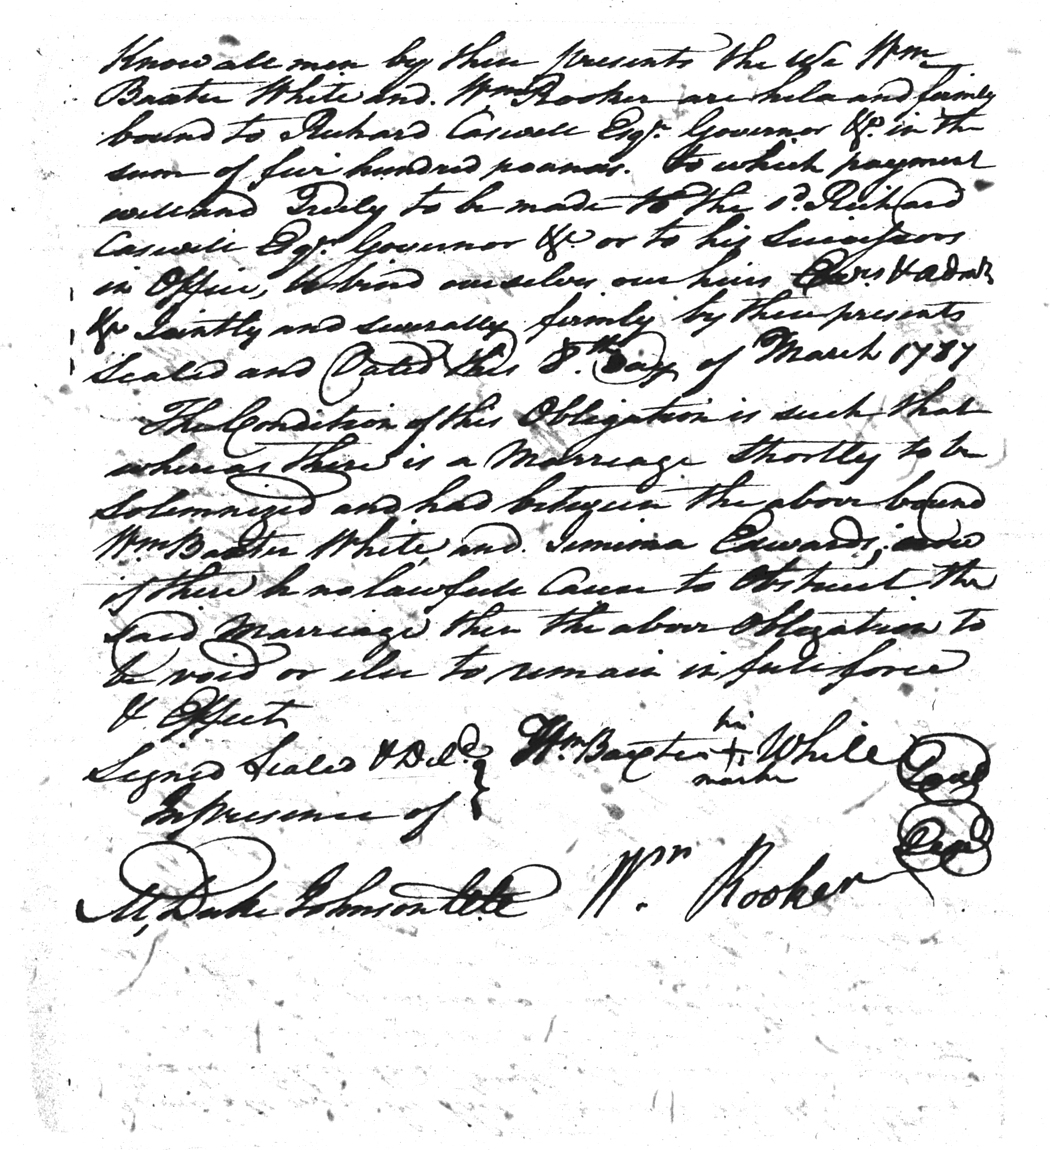 Know all men by these presents the We Wm
Baxter White and Wm Rooker are held and firmly
bound to Richard Caswell Esqr. Governor &c. in the
sum of five hundred pounds. To which payment
well and Truly to be made to the sd. Richard
Caswell Esqr. Governor &c or to his Successors
in Office, we bind ourselves our heirs Exrs & Admrs
&c Jointly and severally firmly by these presents
Sealed and Dated this 8th Day of March 1787
The Condition of this Obligation is such that
whereas there is a Marriage Shortly to be
Solemnized and had between the above bound
Wm Baxter White and Jemima Edwards, now
if there be no lawfull Cause to Obstruct the
said Marriage then the above Obligation to
be void or else to remain in full force
& Effect
Signed Sealed & Deld. Wm Baxter his + mark White Seal
In presence of
M, Duke Johnson Wm. Rooker Seal